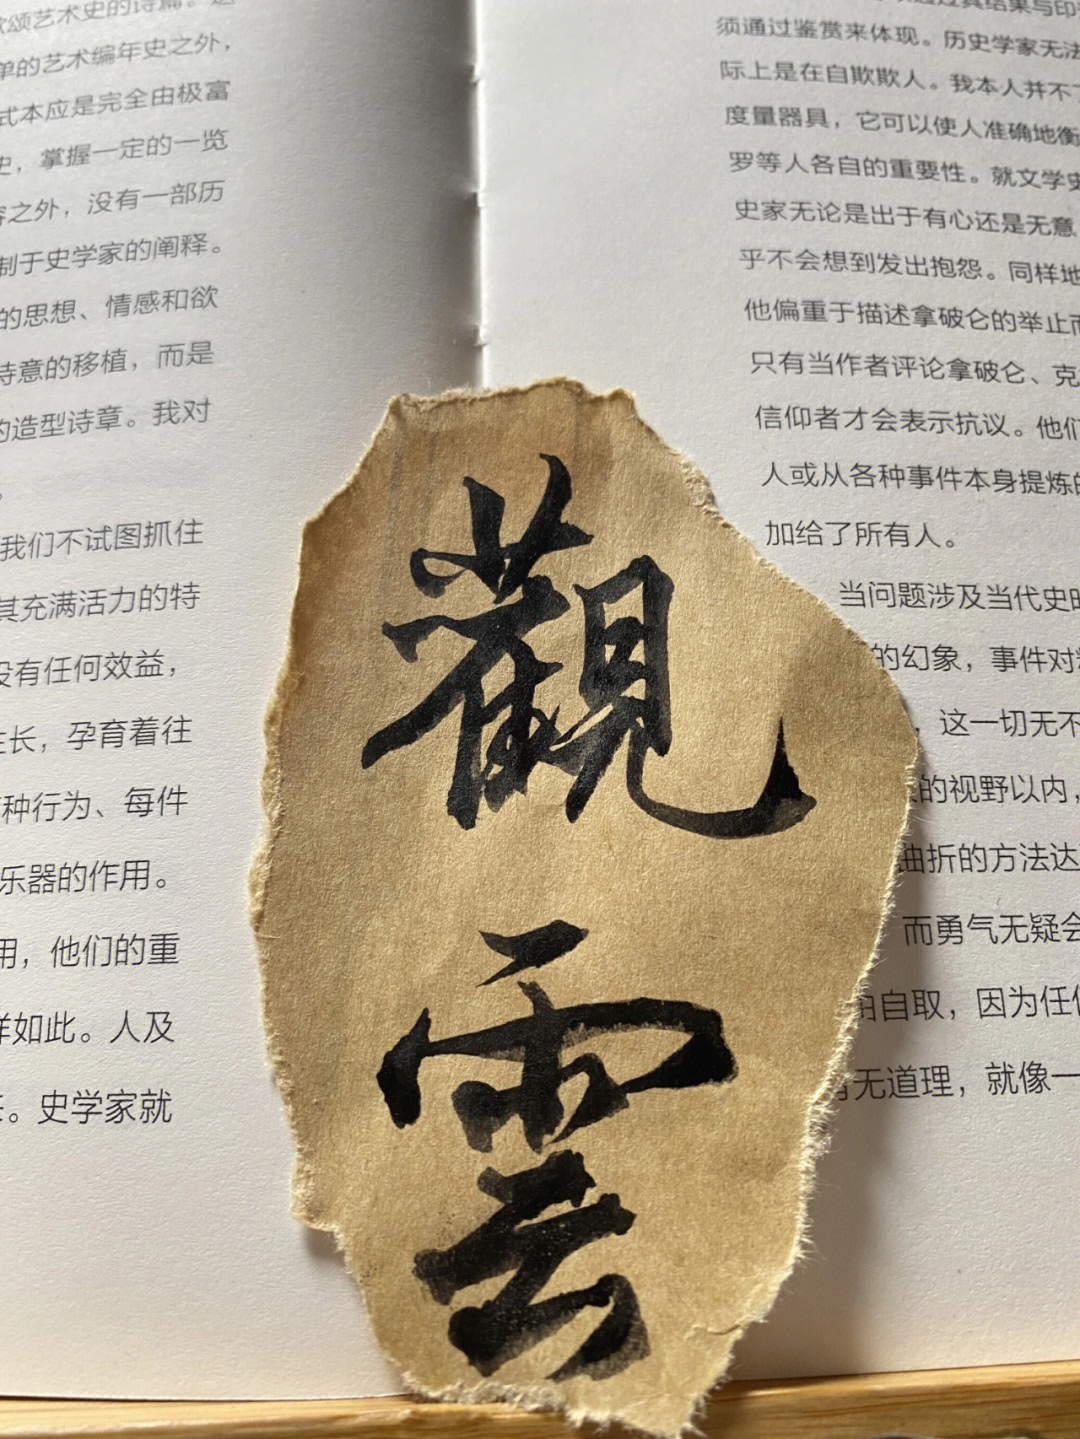 歌颂艺术史的诗篇。这
单的艺术编年史之外，
式本应是完全由极富
史，掌握一定的一览
容之外，没有一部历
制于史学家的阐释。
的思想、情感和欲
诗意的移植，而是
的造型诗章。我对
。
我们不试图抓住
其充满活力的特
没有任何效益，
生长，孕育着往
种行为、每件
乐器的作用。
用，他们的重
样如此。人及
。史学家就
结果与印
须通过鉴赏来体现。历史学家无法
际上是在自欺欺人。我本人并不
度量器具，它可以使人准确地衡
罗等人各自的重要性。就文学史
史家无论是出于有心还是无意
乎不会想到发出抱怨。同样地
他偏重于描述拿破仑的举止而
只有当作者评论拿破仑、克
信仰者才会表示抗议。他们
人或从各种事件本身提炼的
加给了所有人。
当问题涉及当代史时
的幻象，事件对
，这一切无不
的视野以内，
曲折的方法达
而勇气无疑会
自取，因为任何
有无道理，就像一
觀
雲